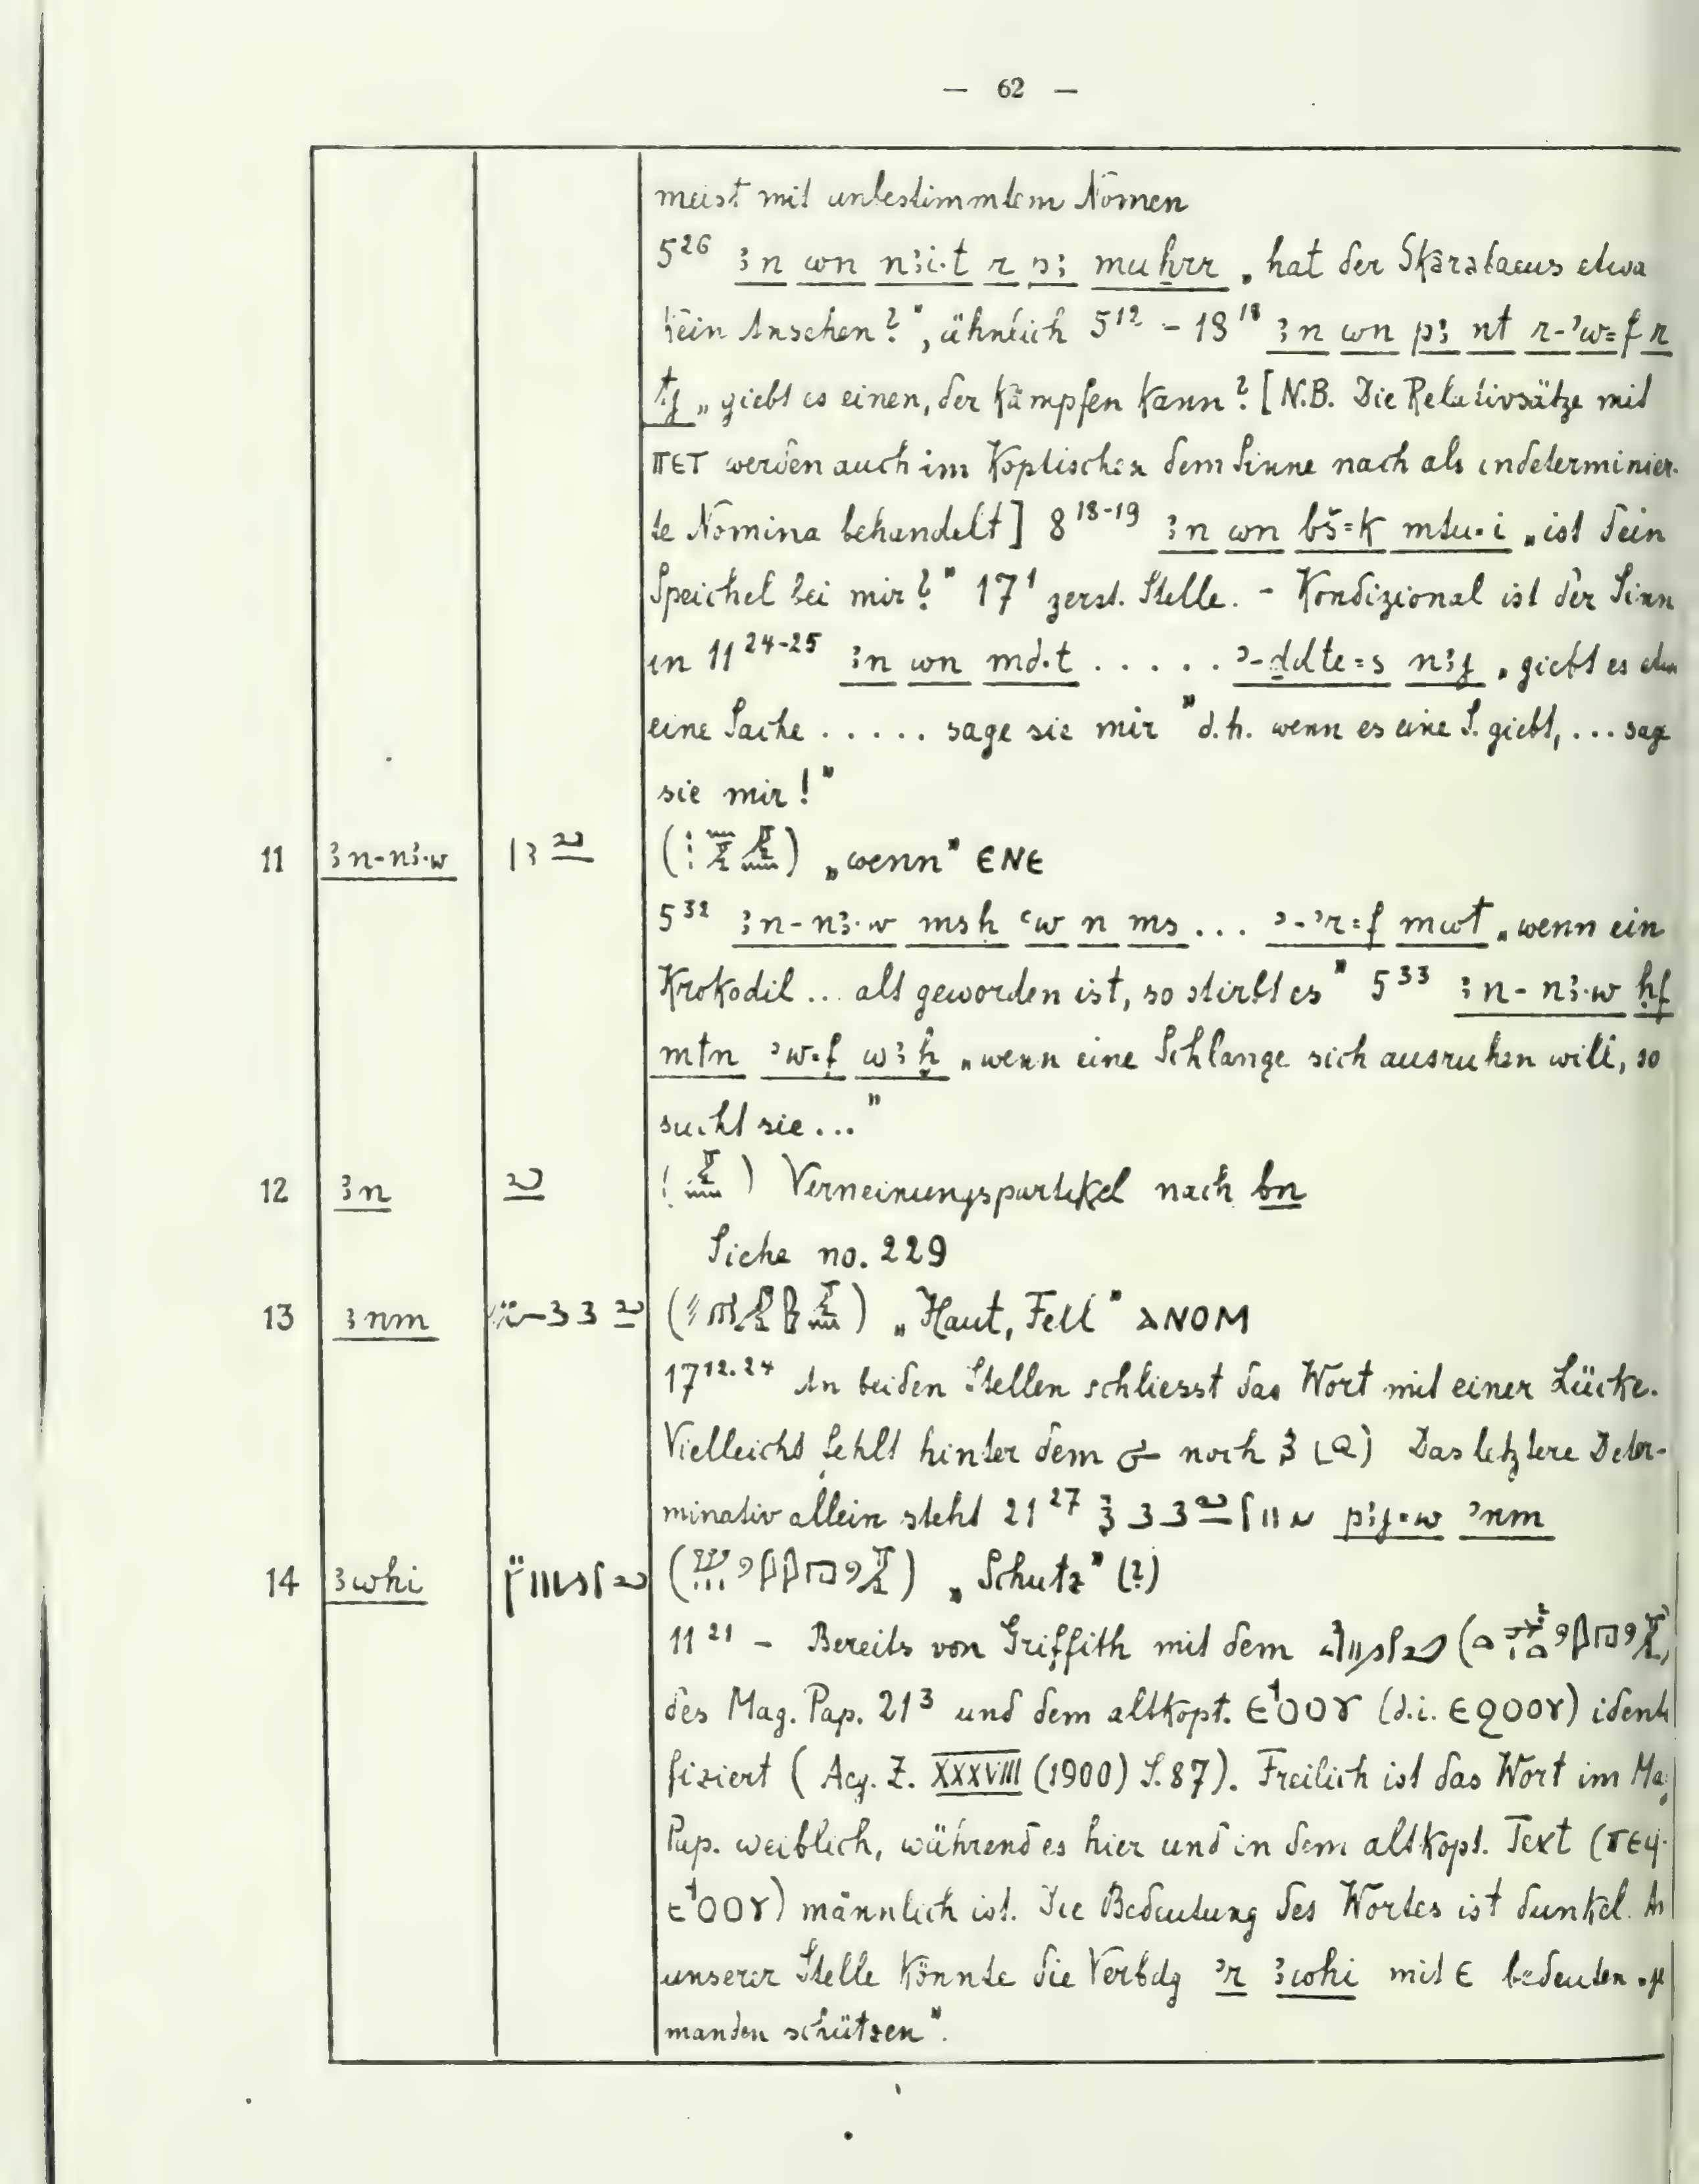 — 62 —
meist mit unbestimmtem Nomen
5²⁶ ꜣn wn nꜣi·t r pꜣ muḥrr „hat der Skarabaeus etwa
kein Ansehen?", ähnlich 5¹² - 18¹⁸ ꜣn wn pꜣ nt r-ʾw=f r
„giebt es einen, der kämpfen kann? [N.B. Die Relativsätze mit
ⲠⲈⲦ werden auch im Koptischen dem Sinne nach als indeterminier-
te Nomina behandelt] 8¹⁸⁻¹⁹ ꜣn wn bš=k mtu·i „ist dein
Speichel bei mir?" 17¹ zerst. Stelle. - Kondizional ist der Sinn
in 11²⁴⁻²⁵ ꜣn wn md·t . . . . . ʾ-ḏdte=s nꜣj „giebt es etwa
eine Sache ..... sage sie mir" d.h. wenn es eine S. giebt, ... sage
sie mir!"
11 ꜣn-nꜣ·w ( ) „wenn" ⲈⲚⲈ
5³² ꜣn-nꜣ·w msḥ ꜥw n ms ... ʾ-ʾr=f mwt „wenn ein
Krokodil ... alt geworden ist, so stirbt es" 5³³ ꜣn-nꜣ·w ḥf
mtn ʾw=f wꜣḥ „wenn eine Schlange sich ausruhen will, so
sucht sie..."
12 ꜣn ( ) Verneinungspartikel nach bn
Siehe no. 229
13 ꜣnm ( ) „Haut, Fell" ⲀⲚⲞⲘ
17¹²·²⁴ An beiden Stellen schliesst das Wort mit einer Lücke.
Vielleicht fehlt hinter dem noch Das letztere Deter-
minativ allein steht 21²⁷ pꜣj·w ʾnm
14 ꜣwhi ( ) „Schutz" (?)
11²¹ - Bereits von Griffith mit dem
des Mag. Pap. 21³ und dem altkopt. (d.i. ⲈϨⲞⲞⲨ) identi
fiziert (Aeg. Z. XXXVIII (1900) S. 87). Freilich ist das Wort im Ma
Pap. weiblich, während es hier und in dem altkopt. Text (ⲠⲈϤ-
) männlich ist. Die Bedeutung des Wortes ist dunkel. An
unserer Stelle könnte die Verbdg ʾr ꜣwhi mit Ⲉ bedeuten „je
manden schützen".